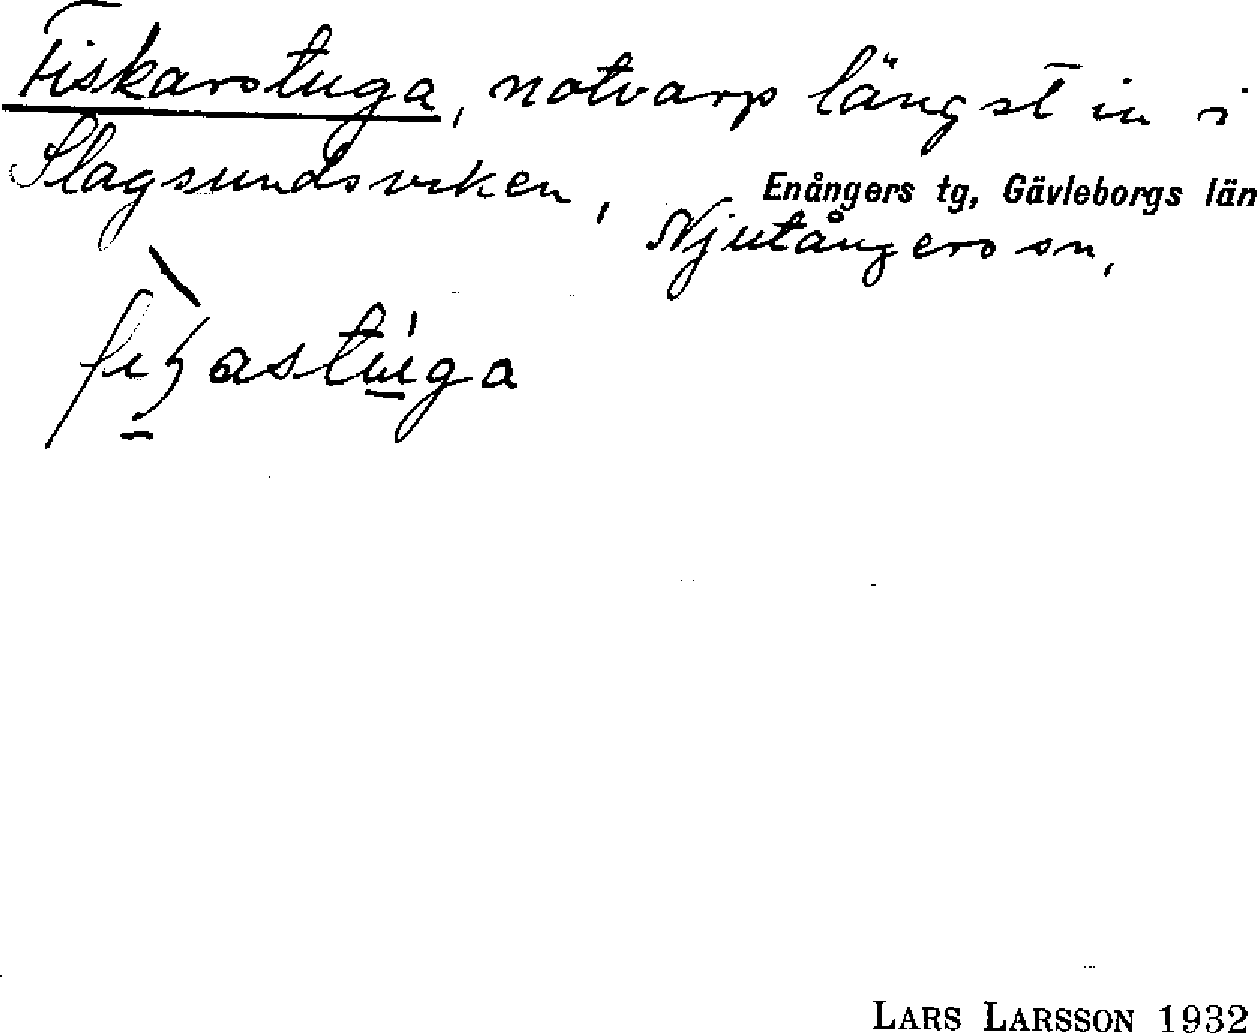 Fiskarstuga, notvarp längst in i
Slagsundsviken,
Enångers tg, Gävleborgs län
Njutångers sn,
LARS LARSSON 1932